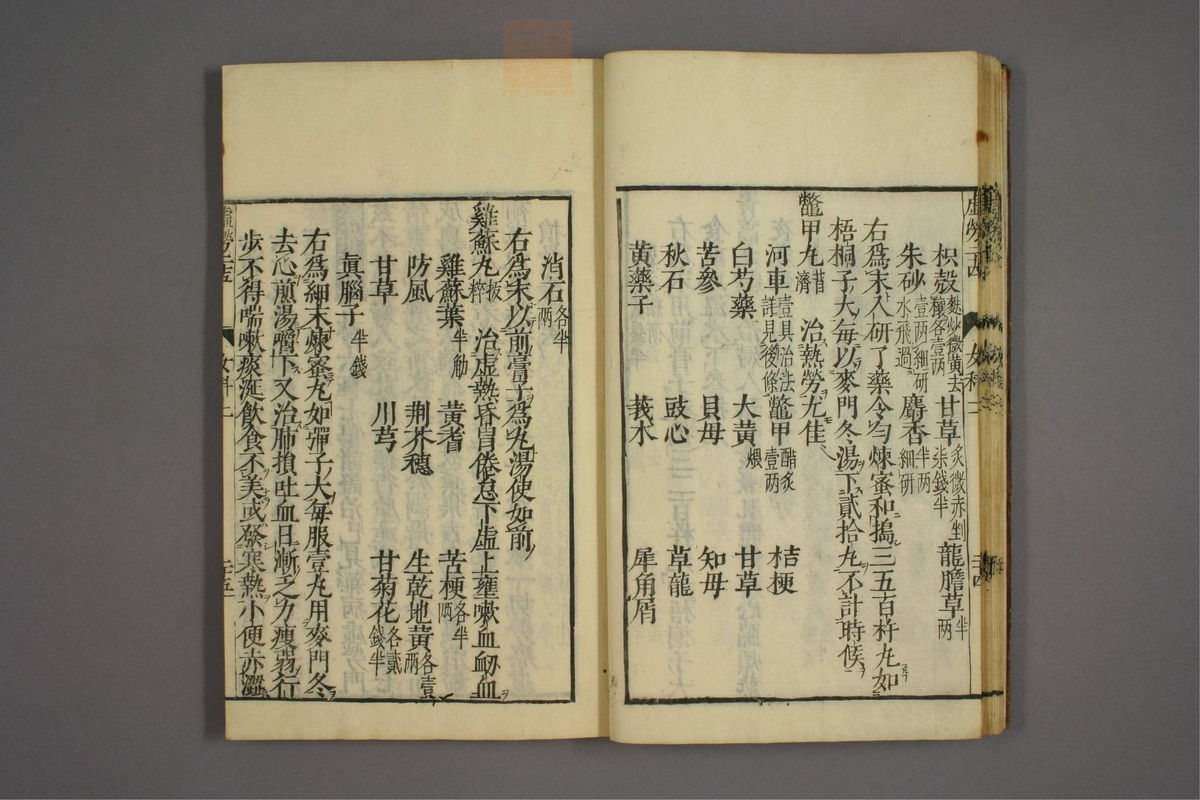 枳殼麩炒微黃去穰各壹两 甘草炙微赤剉柒錢半 龍膽草半两
朱砂壹两細研水飛過 麝香半两細研
右爲末入研了藥令勻煉蜜和搗三五百杵丸如
梧桐子大每以麥門冬湯下貳拾丸不計時候
鼈甲丸 治熱勞尤佳
河車壹具治法詳見後條 鼈甲醋炙壹两 桔梗
白芍藥 大黃煨 甘草
苦參 貝母 知母
秋石 豉心 草龍
黃藥子 莪木 犀角屑
消石各半两
右爲末以前膏子爲丸湯使如前
雞蘇丸 治虛熱昏冒倦怠下虛上壅嗽血衂血
雞蘇葉半觔 黃耆 苦梗各半两
防風 荆芥穗 生乾地黃各壹两
甘草 川芎 甘菊花各貳錢半
眞腦子半錢
右爲細末煉蜜丸如彈子大每服壹丸用麥門冬
去心煎湯嚼下又治肺損吐血日漸乏力瘦弱行
步不得喘嗽痰涎飲食不美或發寒熱小便赤澀
女科二